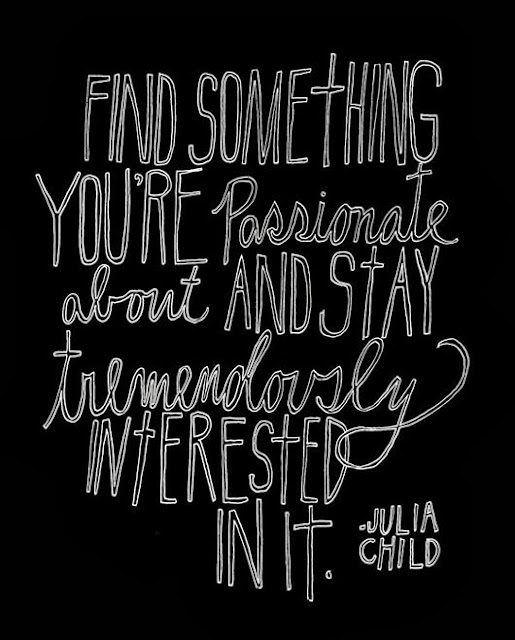 FIND SOMETHING
YOU'RE Passionate
about AND STAY
tremendously
INTERESTED
IN IT.
-JULIA
CHILD